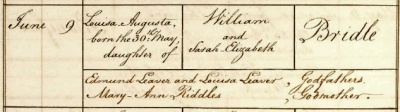 June 9 Louisa Augusta, William Bridle
born the 30th May, and
daughter of Sarah Elizabeth
Edmund Leaver and Louisa Leaver, Godfathers.
Mary-Ann Riddles, Godmother.